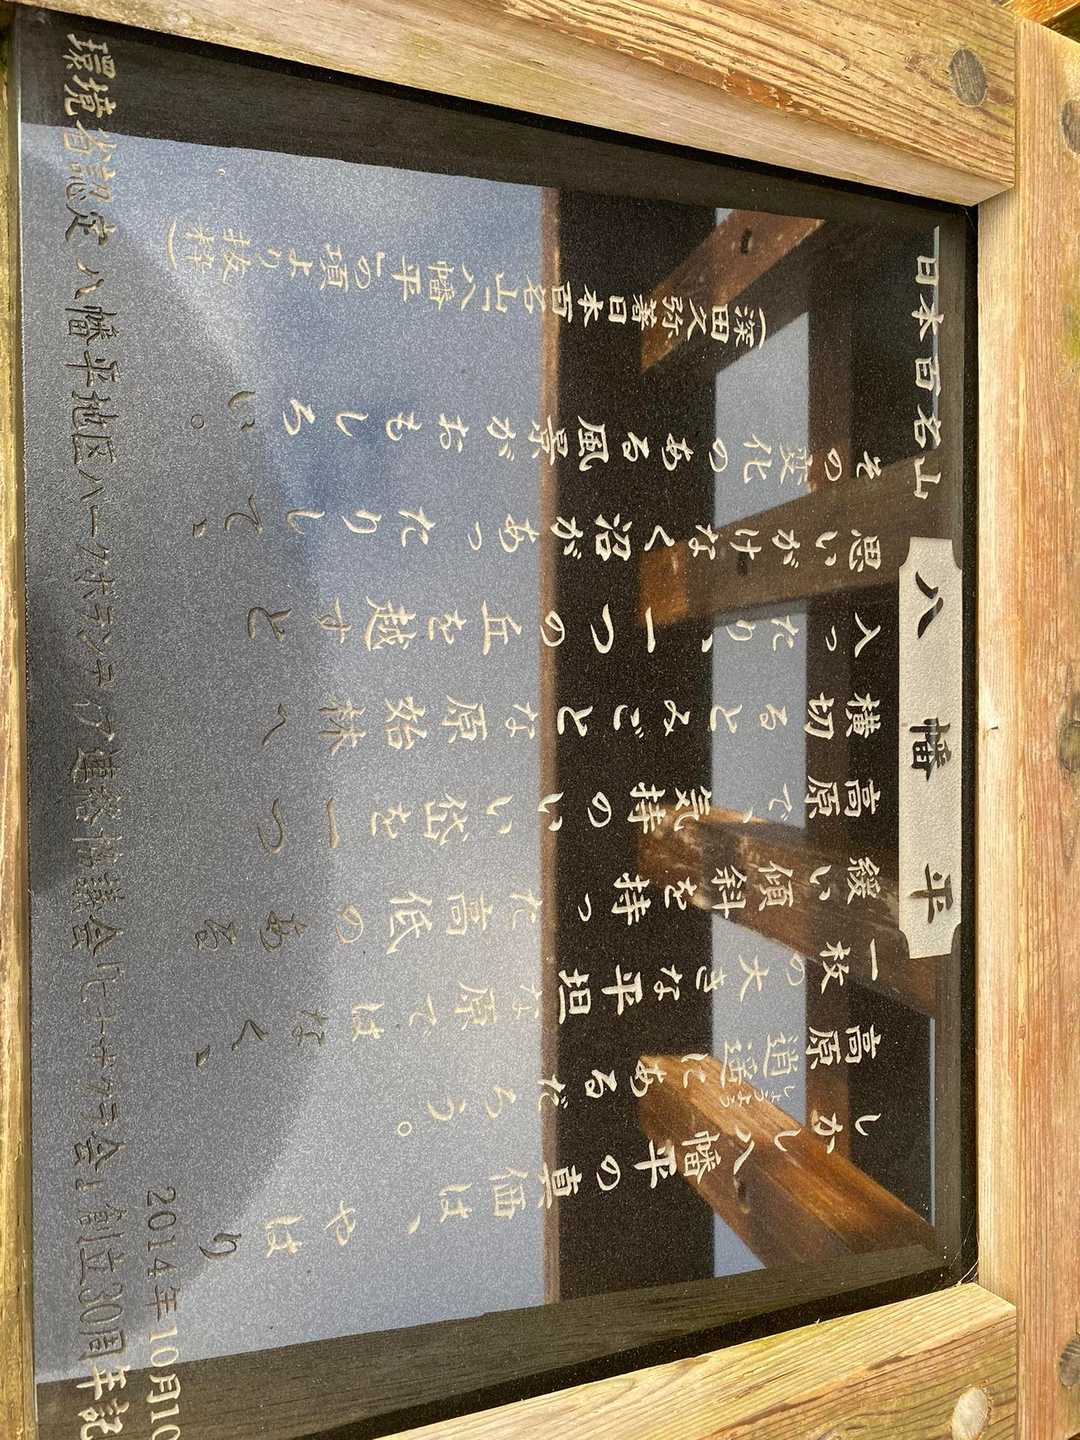 日本百名山
八幡平
しかし八幡平の真価は、やはり
高原逍遥にあるだろう。
しょうよう
一枚の大きな平坦な原ではなく、
緩い傾斜を持った高低のある
高原で、気持のいい岱を一つ
横切るとみごとな原始林へ
入ったり、一つの丘を越すと
思いがけなく沼があったりして、
その変化のある風景がおもしろい。
(深田久弥著日本百名山「八幡平」の項より抜粋)
2014年10月10
環境省認定 八幡平地区パークボランティア連絡協議会「ヒナザクラ会」創立30周年記